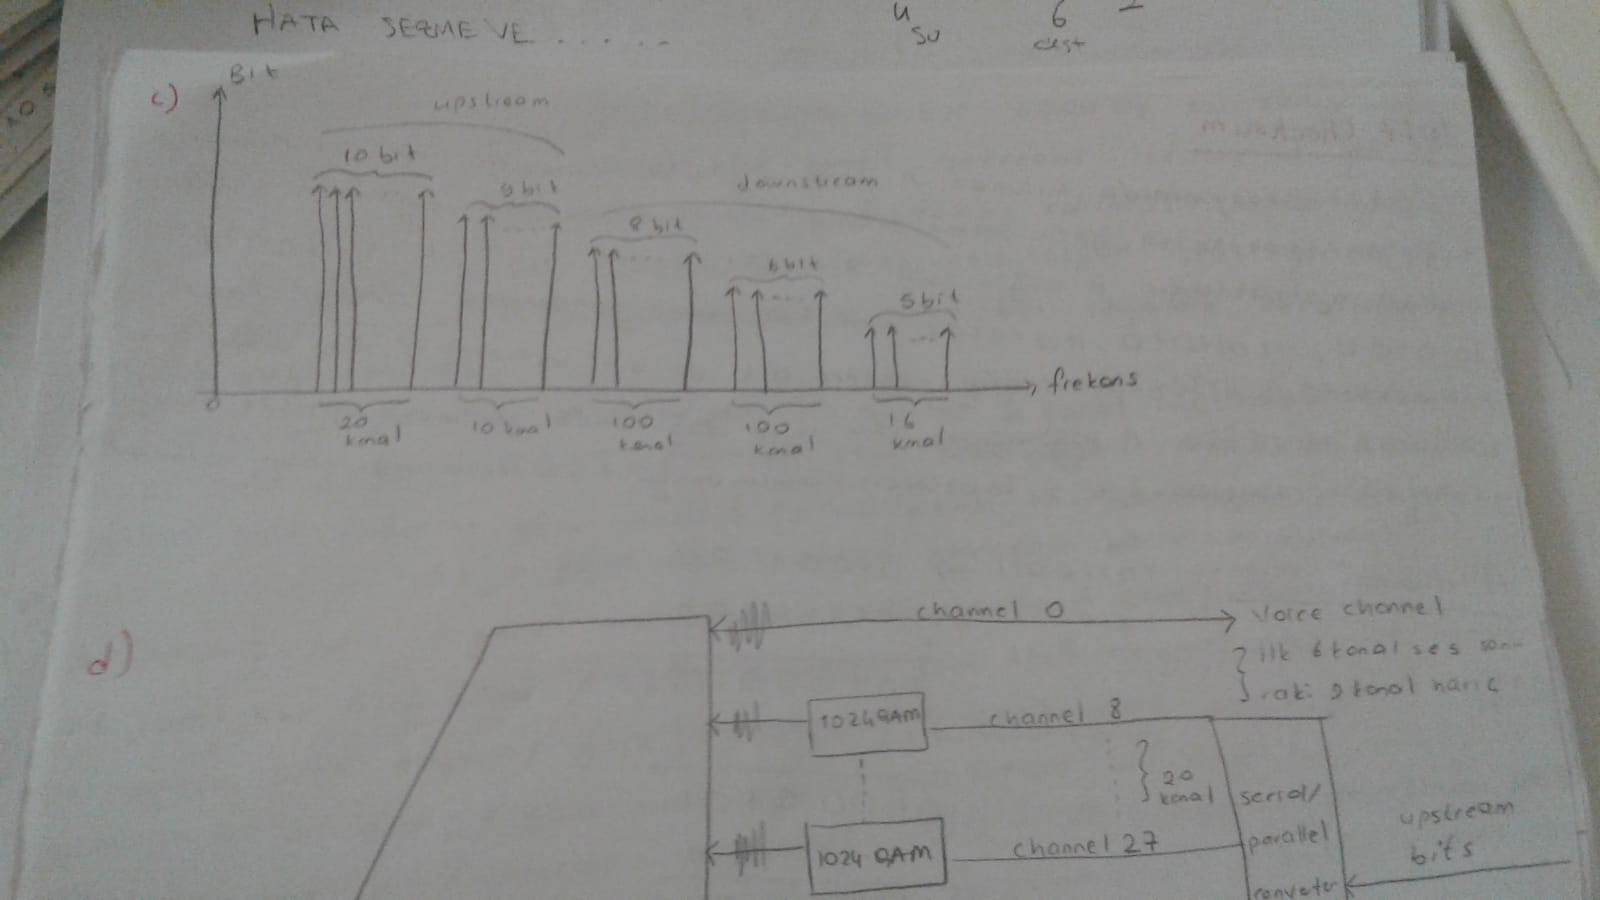 HATA SEZME VE ......
u
su
6
dest
c)
Bit
upstream
10 bit
9 bit
downstream
8 bit
6 bit
5 bit
frekans
0
20
kanal
10 kanal
100
kanal
100
kanal
16
kanal
d)
channel 0
Voice channel
ilk 6 kanal ses son-
raki 2 kanal hariç
1024 QAM
channel 8
20
kanal
serial/
parallel
converter
upstream
bits
1024 QAM
channel 27